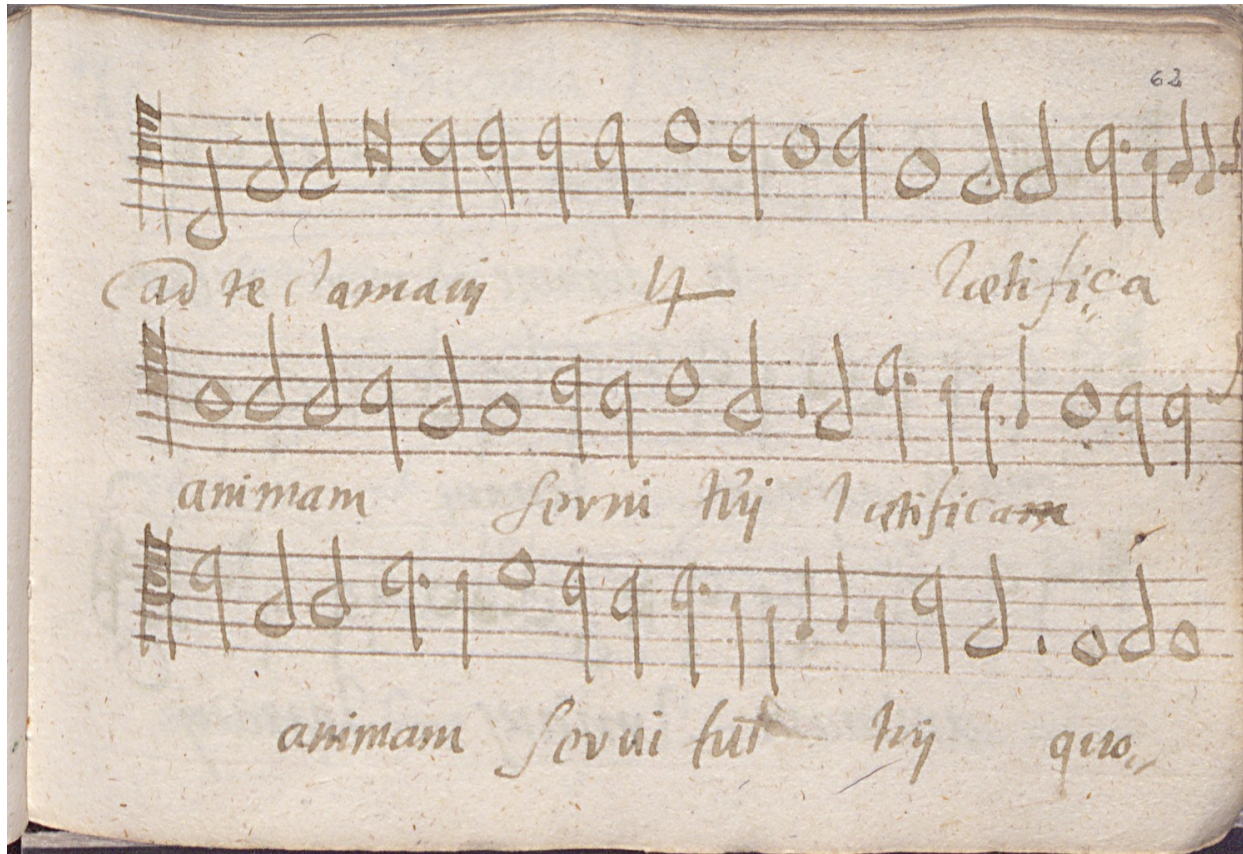 62
ad te clamavi ij lætifica
animam servi tuij lætifica
animam servi tuij quo